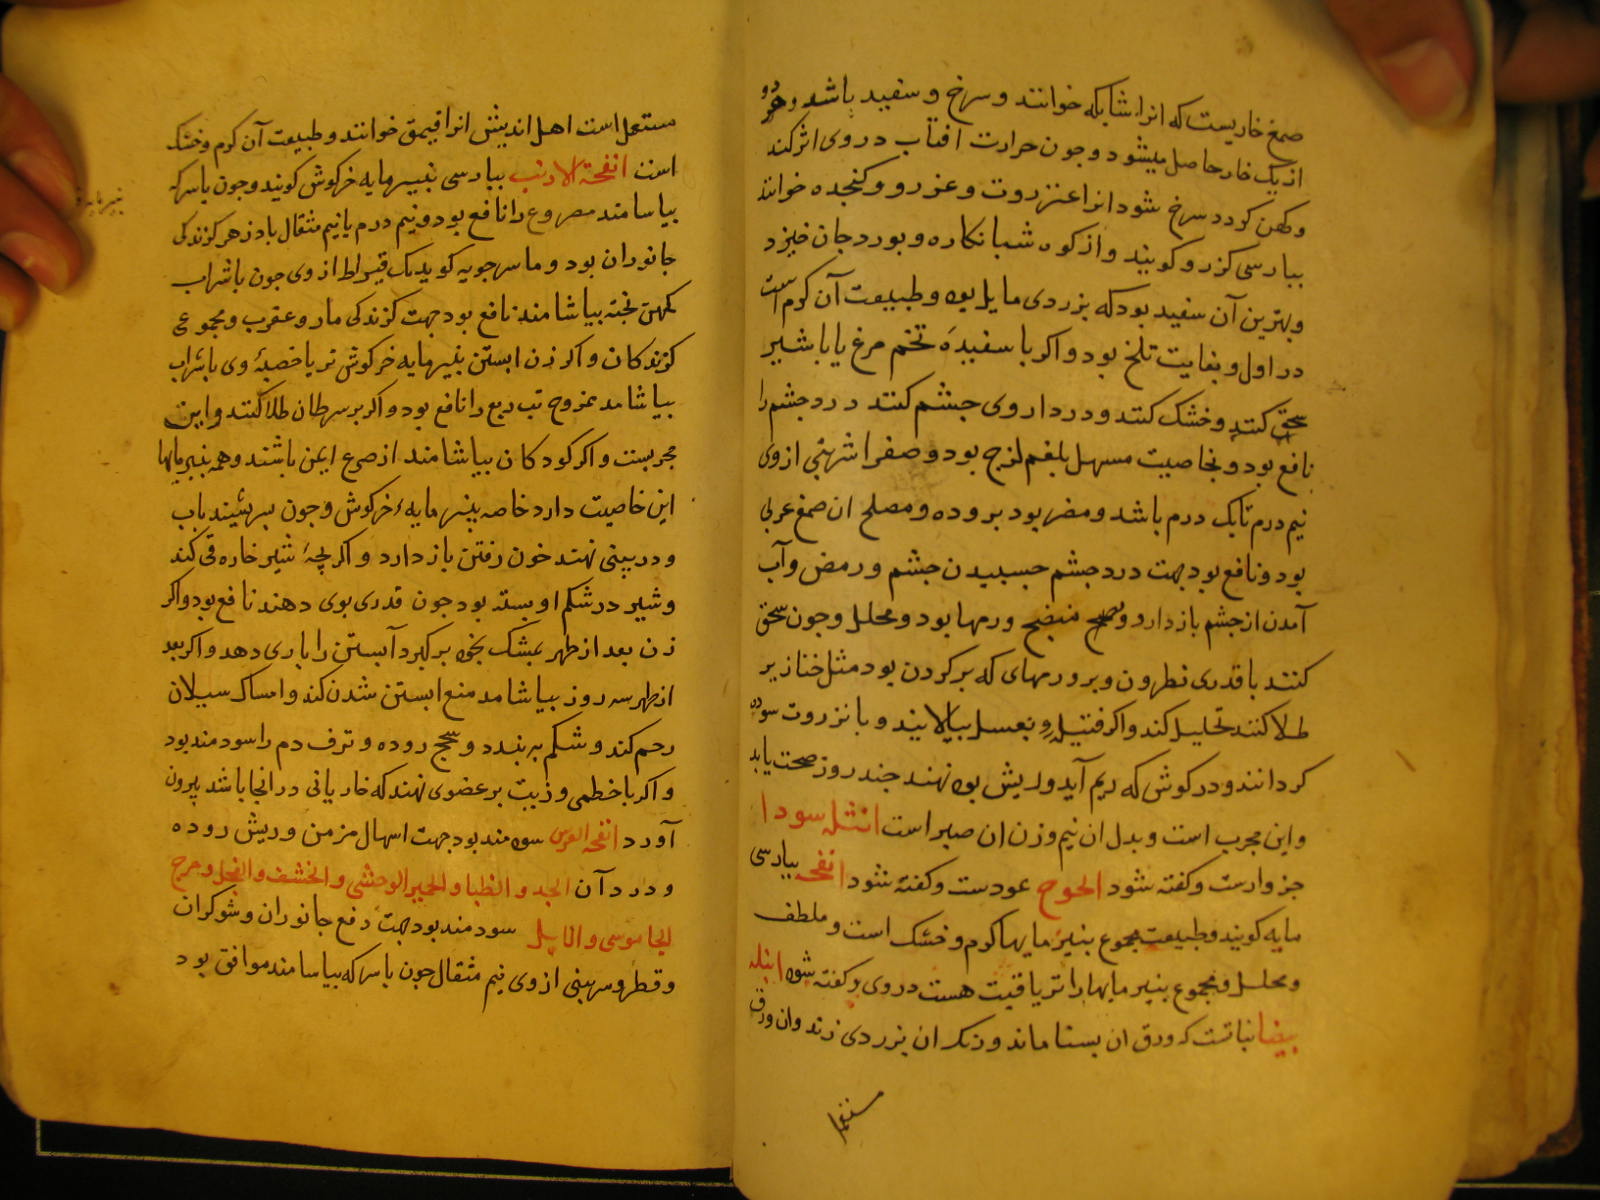 صمغ خاریست که انرا شابکه خوانند و سرخ و سفید باشد و هر دو
از یک خار حاصل میشود و جون حرارت افتاب در وی اثر کند
و کهن کردد سرخ شود انرا عنزروت و عنزرو و کنجده خوانند
ببارسی کزرو کویند و از کوه شبانکاره و بورد جان خیزد
و بهترین آن سفید بود که بزردی مایل بود و طبیعت آن کرم است
در اول و بغایت تلخ بود و اکر با سفیده تخم مرغ یا با شیر
سحق کنند و خشک کنند و در داروی جشم کنند درد جشم را
نافع بود و بخاصیت مسهل بلغم لزج بود و صفرا شربتی از وی
نیم درم تا یک درم باشد و مضر بود بروده و مصلح ان صمغ عربی
بود و نافع بود جهت درد جشم جسبیدن جشم و رمص و آب
آمدن از جشم باز دارد و منضج ورمها بود و محلل و جون سحق
کنند با قدری نطرون و بر ورمهای که بر کردن بود مثل خنازیر
طلا کنند تحلیل کند و اکر فتیله بعسل بیالایند و بانزروت سوده
کردانند و در کوش که ریم آید و ریش بود نهند جند روز صحت یابد
و این مجرب است و بدل ان نیم وزن ان صبر است انتله سودا
جزوارست و کفته شود الحوج عودست و کفته شود انفحه ببارسی
مایه کویند و طبیعت مجموع بنیر مایها کرم و خشک است و ملطف
و محلل و مجموع بنیر مایها را تریاقیت هست در وی و کفته شود انتله
بیضا نباتست که ورق ان بسنا ماند و رنک ان بزردی زند و ان ورق
مستعمل
مستعمل است اهل اندلیش انرا قیمق خوانند و طبیعت آن کرم و خشک
است انفحة الارنب ببارسی بنیرمایه خرکوش کویند و جون با سرکه
بیاسامند مصروع را نافع بود و نیم درم یا نیم مثقال بادزهر کزندکی
جانوران بود و ماسرجویه کوید یک قیراط از وی جون با شراب
کهن تخته بیاشامند نافع بود جهت کزندکی مار و عقرب و مجموع
کزندکان و اکر زن ابستن بنیرمایه خرکوش نر یا خصیهٔ وی با شراب
بیاشامد ممزوج تب ربع را نافع بود و اکر بر سرطان طلا کنند و این
مجربست و اکر کودکان بیاشامند از صرع ایمن باشند و همه بنیرمایها
این خاصیت دارد خاصه بنیرمایهٔ خرکوش و جون بسرشیند باب
و در بینی نهند خون رفتن باز دارد و اکر بجهٔ شیرخاره قی کند
و شیر در شکم او بسته بود جون قدری بوی دهند نافع بود و اکر
زن بعد از طهر بمشک بخود برکیرد آبستن را یاری دهد و اکر بعد
از طهر سه روز بیاشامد منع ابستن شدن کند و امساک سیلان
رحم کند و شکم به بندد و سحج روده و نزف دم را سودمند بود
و اکر با خطمی و زیت بر عضوی نهند که خار یا نی در انجا باشد بیرون
آورد انفحة الفرس سودمند بود جهت اسهال مزمن و ریش روده
و درد آن الجد و الظبا و الحمیر الوحشی و الخشف و العجل و مرح
الجاموسی و الایل سودمند بود جهت دفع جانوران و شوکران
و قطر و سربتی از وی نیم مثقال جون با سرکه بیاسامند موافق بود